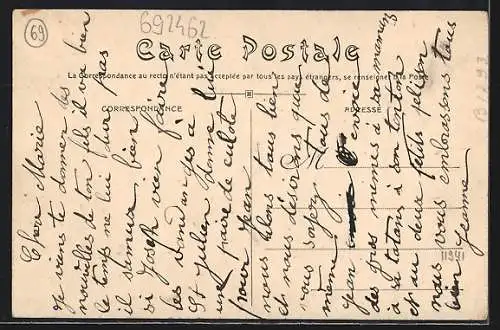 69
692462
Carte Postale
La Correspondance au recto n'étant pas acceptée par tous les pays étrangers, se renseigner à la Poste
CORRESPONDANCE
ADRESSE
Cheri Marie
Je viens te donner des
nouvelles de ton fils il va bien
le temps ne lui dur pas
il samuse bien
si Joseph vien faire
les vandanges à
St Julien donne lui
une paire de culote
pour Jean
nous allons tous bien
et nous désirons que
vous soyez tous de
meme
Jean envoie
des gros mimes à sa maman
à sa tatan à son tonton
et au deux petits felicien
nous vous embrassens tous
bien Jeanne
11241